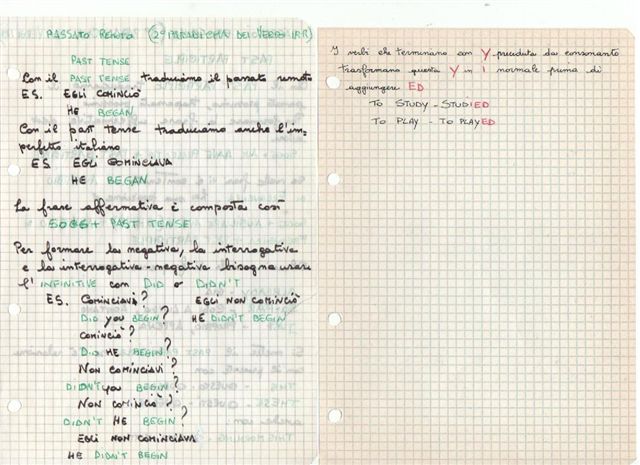 PASSATO REMOTO (2° PARADIGMA DEI VERBI IRR)
PAST TENSE
Con il PAST TENSE traduciamo il passato remoto
ES. EGLI COMINCIÒ
HE BEGAN
Con il past tense traduciamo anche l'im=
perfetto italiano
ES. EGLI COMINCIAVA
HE BEGAN
La frase affermativa è composta così
SOGG + PAST TENSE
Per formare la negativa, la interrogativa
e la interrogativa-negativa bisogna usare
l'INFINITIVE con DID o DIDN'T
ES. COMINCIAVI? EGLI NON COMINCIÒ
DID you BEGIN? HE DIDN'T BEGIN
COMINCIÒ?
DID HE BEGIN?
NON COMINCIAVI?
DIDN'T you BEGIN?
NON COMINCIÒ?
DIDN'T HE BEGIN?
EGLI NON COMINCIAVA
HE DIDN'T BEGIN
I verbi che terminano con Y preceduta da consonante
trasformano questa Y in I normale prima di
aggiungere ED
TO STUDY - STUDIED
TO PLAY - TO PLAYED